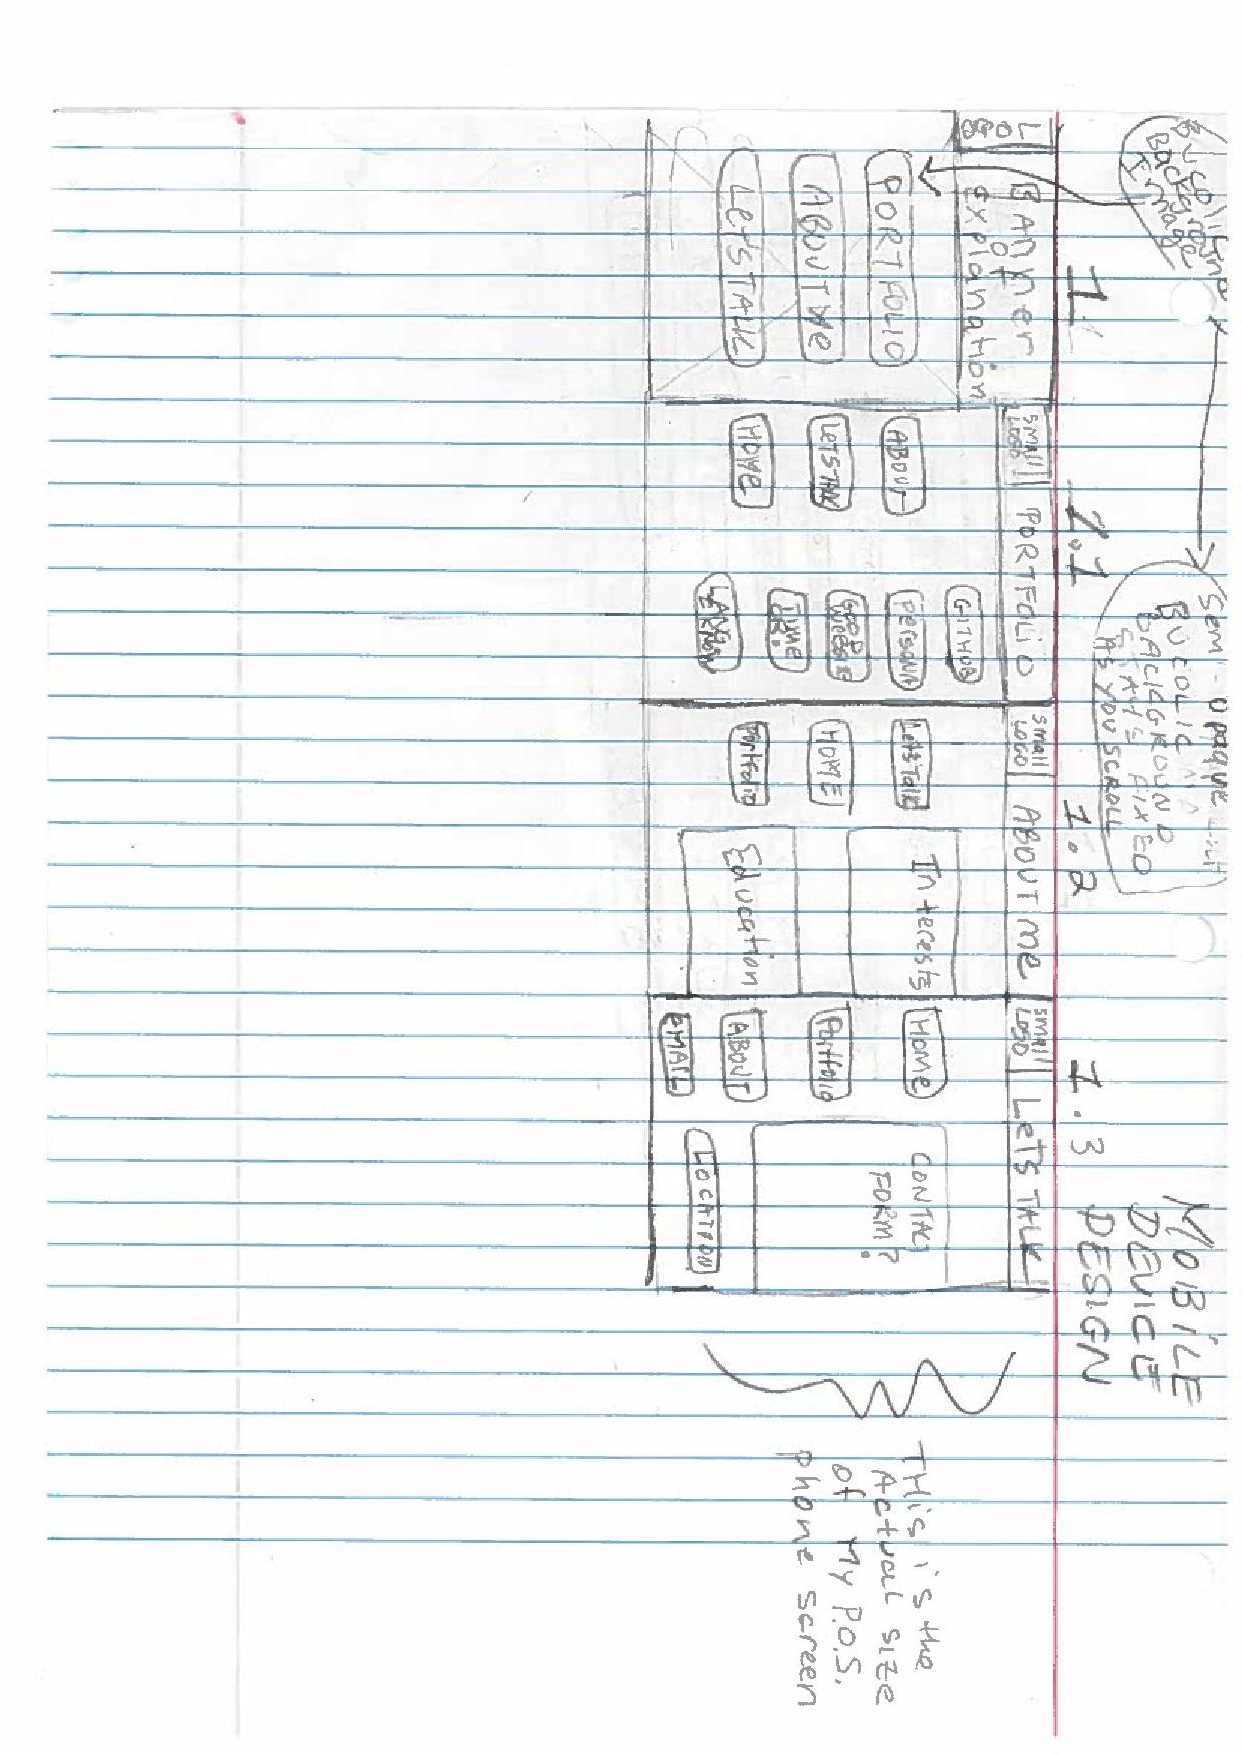 MOBILE
DEVICE
DESIGN
Bucolic
Background
Image
Semi-opaque
BUCOLIC
BACKGROUND
STAYS FIXED
AS YOU SCROLL
1.
LOGO
Banner
of
explanation
PORTFOLIO
ABOUT Me
LET'S TALK
1.1
SMALL
LOGO
PORTFOLIO
ABOUT
LETS TALK
HOME
GITHUB
PERSONA
TIME
1.2
SMALL
LOGO
ABOUT me
Lets Talk
HOME
Portfolio
Interests
Education
1.3
SMALL
LOGO
LETS TALK
Home
Portfolio
ABOUT
EMAIL
CONTACT
FORM?
LOCATION
THis is the
Actual size
of my P.O.S.
phone screen